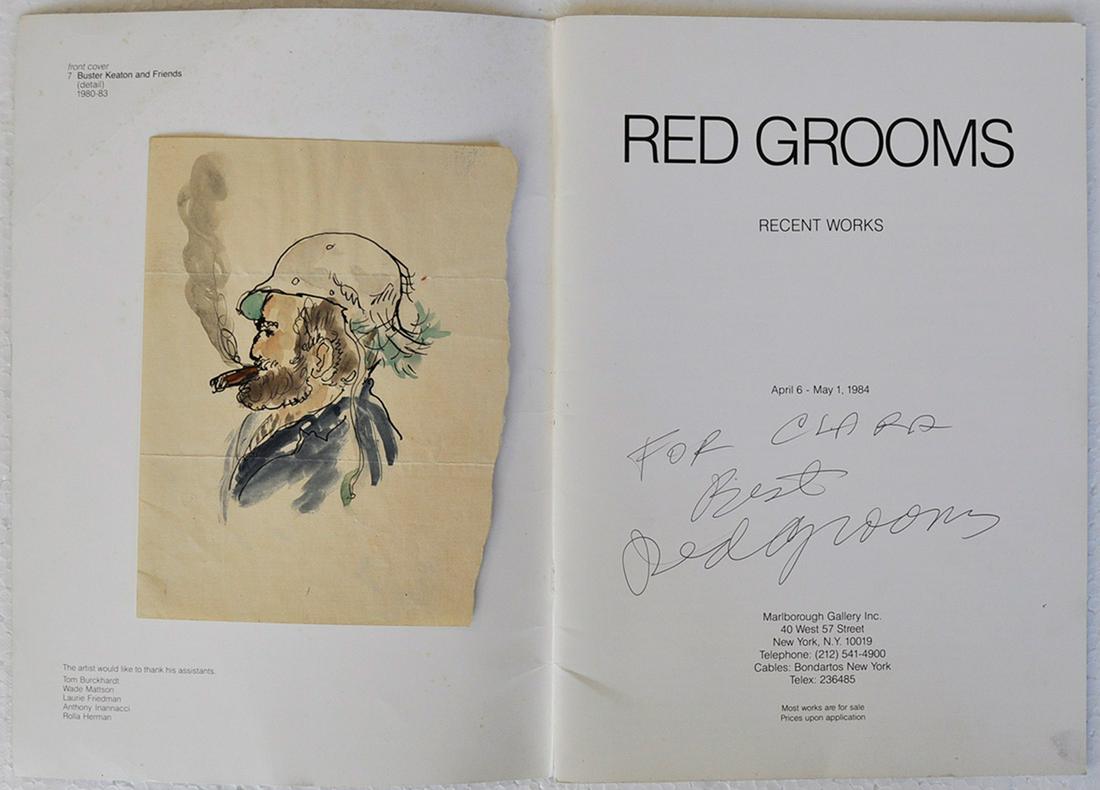 front cover
7 Buster Keaton and Friends
(detail)
1980-83
The artist would like to thank his assistants.
Tom Burckhardt
Wade Mattson
Laurie Friedman
Anthony Inannacci
Rolla Herman
RED GROOMS
RECENT WORKS
April 6 - May 1, 1984
FOR CLARA
Best
Red Grooms
Marlborough Gallery Inc.
40 West 57 Street
New York, N.Y. 10019
Telephone: (212) 541-4900
Cables: Bondartos New York
Telex: 236485
Most works are for sale
Prices upon application